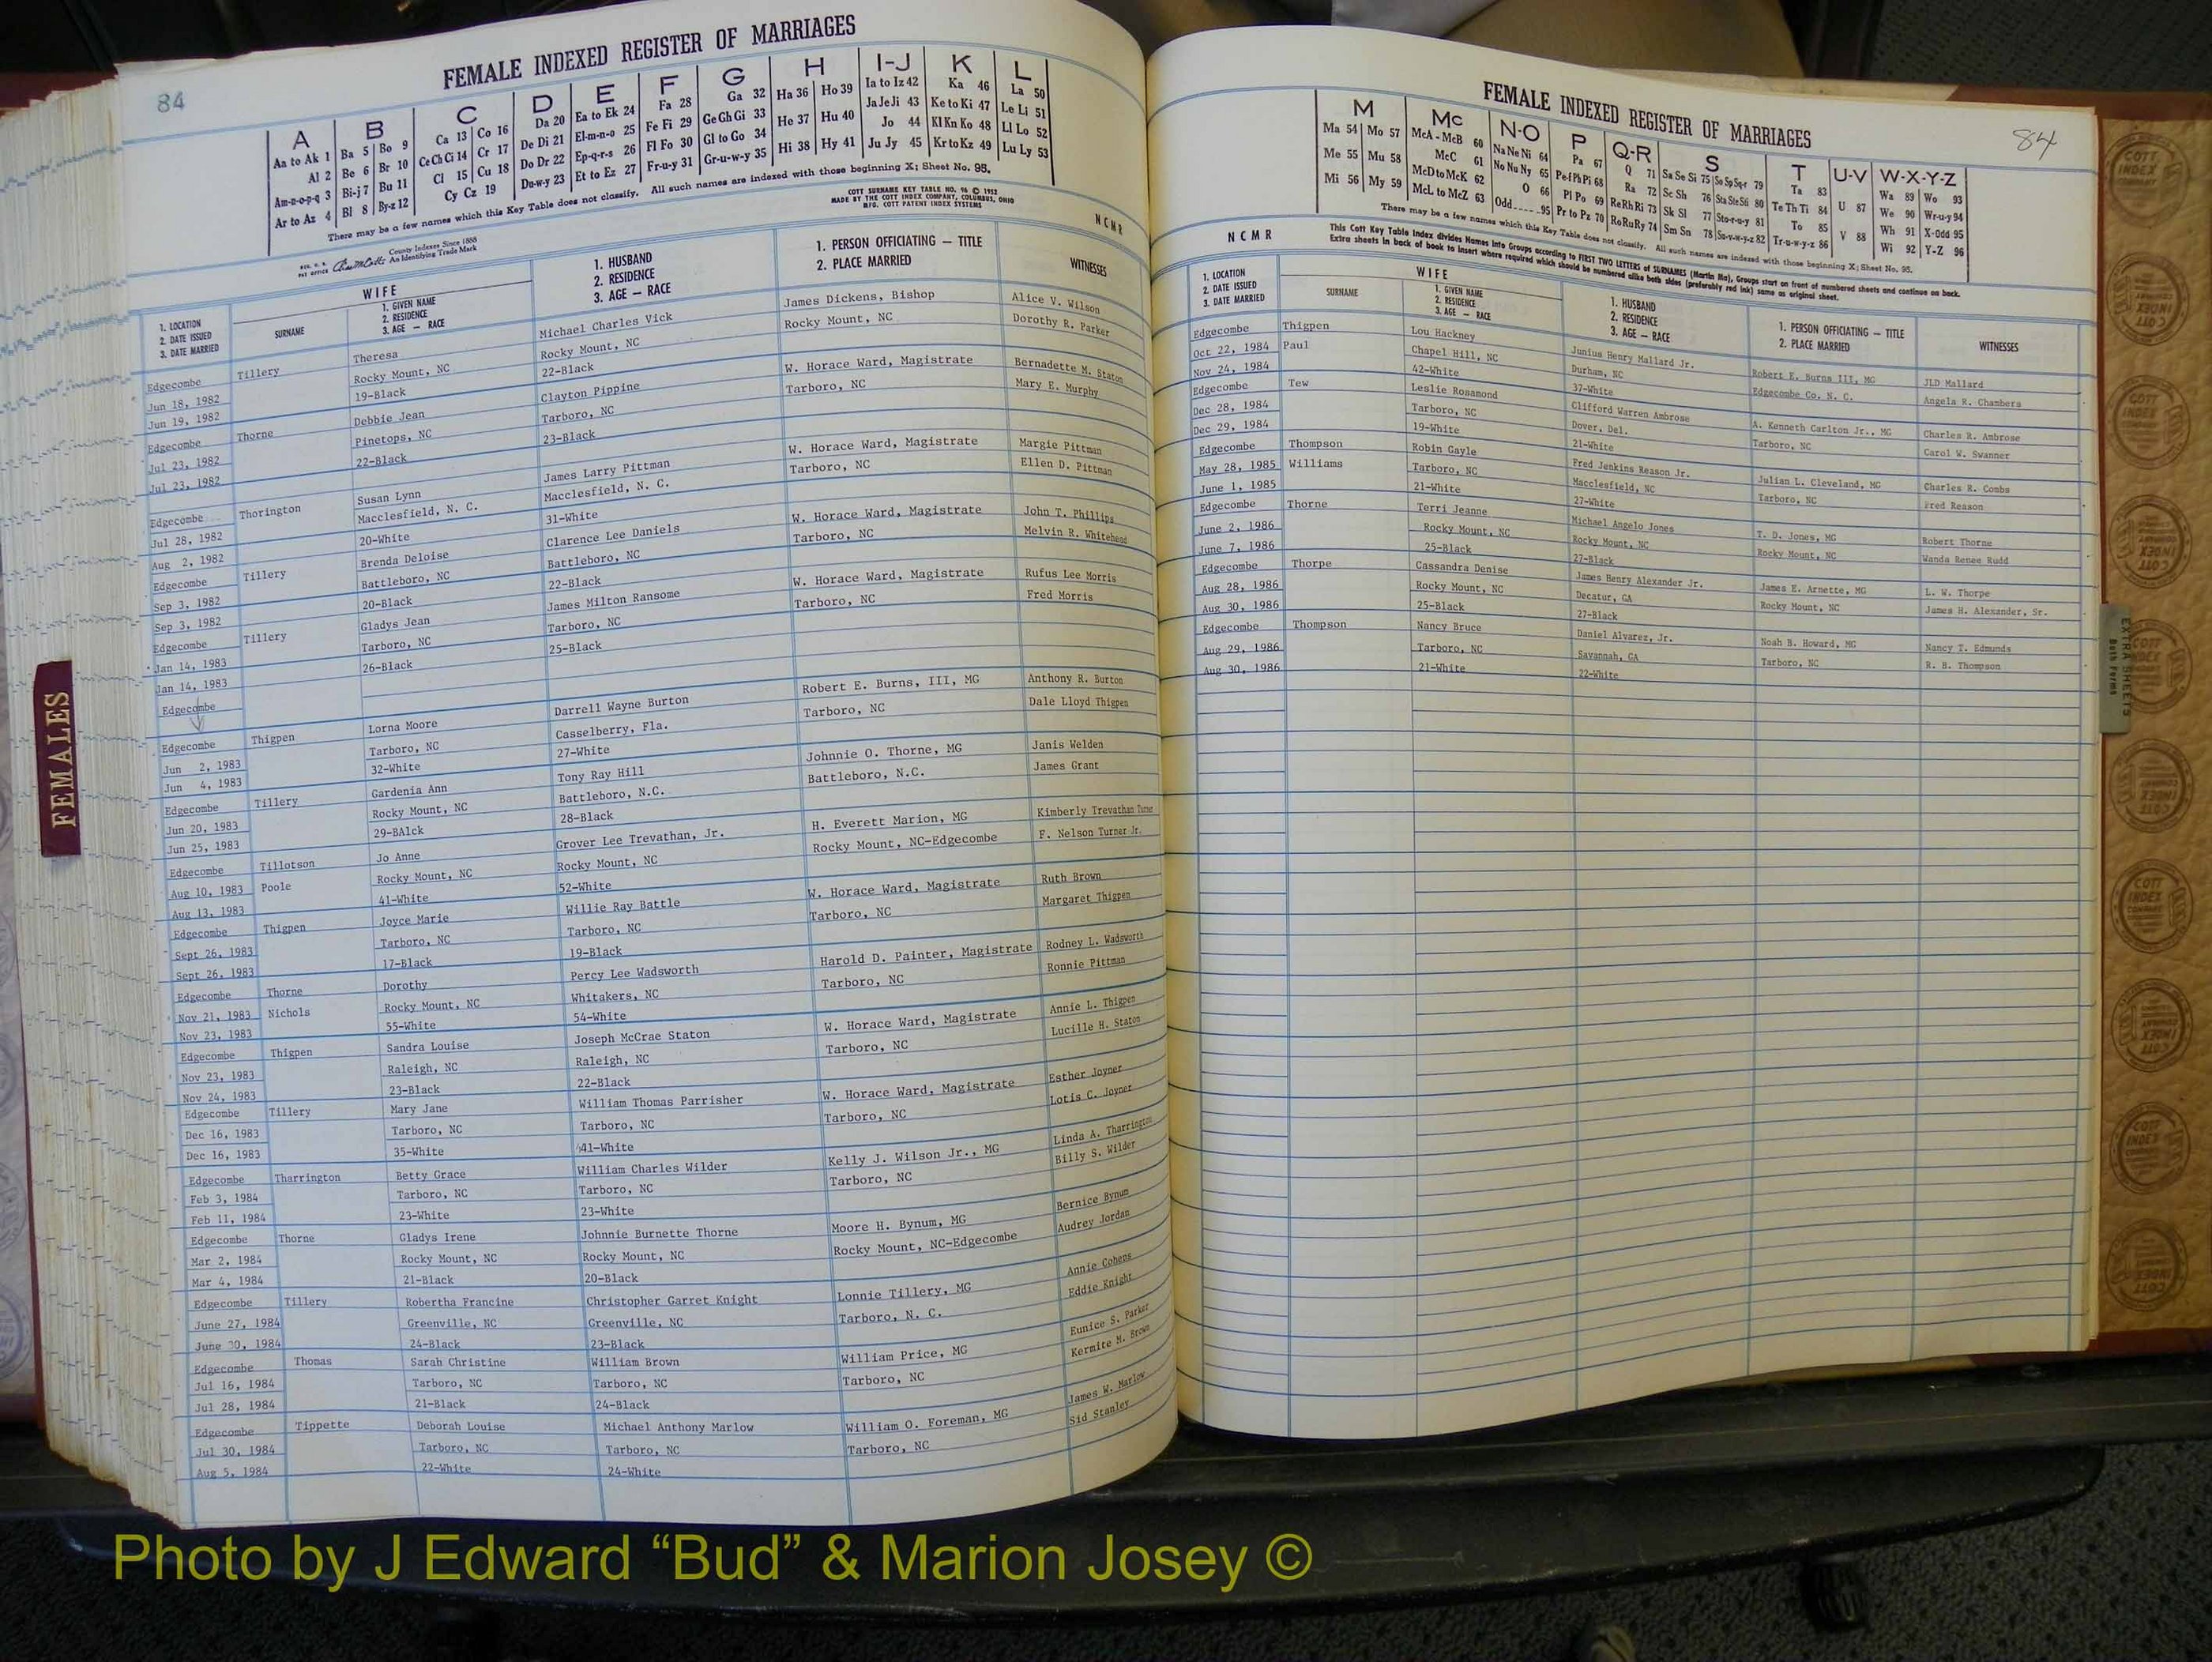 84
FEMALE INDEXED REGISTER OF MARRIAGES
A B C D E F G H I-J K L
Aa to Ak 1 Ba 5 Bo 9 Ca 13 Co 16 Da 20 Ea to Ek 24 Fa 28 Ga 32 Ha 36 Ho 39 Ia to Iz 42 Ka 46 La 50
Al 2 Be 6 Br 10 Ce Ch Ci 14 Cr 17 De Di 21 El-m-n-o 25 Fe Fi 29 Ge Gh Gi 33 He 37 Hu 40 Ja Je Ji 43 Ke to Ki 47 Le Li 51
Am-n-o-p-q 3 Bi-j 7 Bu 11 Cl 15 Cu 18 Do Dr 22 Ep-q-r-s 26 Fl Fo 30 Gl to Go 34 Hi 38 Hy 41 Jo 44 Kl Kn Ko 48 Ll Lo 52
Ar to Az 4 Bl 8 By-z 12 Cy Cz 19 Du-w-y 23 Et to Ez 27 Fr-u-y 31 Gr-u-w-y 35 Ju Jy 45 Kr to Kz 49 Lu Ly 53
There may be a few names which this Key Table does not classify. All such names are indexed with those beginning X; Sheet No. 95.
County Indexes Since 1888
An Identifying Trade Mark
COTT SURNAME KEY TABLE NO. 96 © 1952
MADE BY THE COTT INDEX COMPANY, COLUMBUS, OHIO
MFG. COTT PATENT INDEX SYSTEMS
NCMR
1. LOCATION
2. DATE ISSUED
3. DATE MARRIED
WIFE
SURNAME
1. GIVEN NAME
2. RESIDENCE
3. AGE — RACE
1. HUSBAND
2. RESIDENCE
3. AGE — RACE
1. PERSON OFFICIATING — TITLE
2. PLACE MARRIED
WITNESSES
Edgecombe Tillery Theresa Michael Charles Vick James Dickens, Bishop Alice V. Wilson
Jun 18, 1982 Rocky Mount, NC Rocky Mount, NC Rocky Mount, NC Dorothy R. Parker
Jun 19, 1982 19-Black 22-Black
Edgecombe Thorne Debbie Jean Clayton Pippine W. Horace Ward, Magistrate Bernadette M. Staton
Jul 23, 1982 Pinetops, NC Tarboro, NC Tarboro, NC Mary E. Murphy
Jul 23, 1982 22-Black 23-Black
Edgecombe Thorington Susan Lynn James Larry Pittman W. Horace Ward, Magistrate Margie Pittman
Jul 28, 1982 Macclesfield, N. C. Macclesfield, N. C. Tarboro, NC Ellen D. Pittman
Aug 2, 1982 20-White 31-White
Edgecombe Tillery Brenda Deloise Clarence Lee Daniels W. Horace Ward, Magistrate John T. Phillips
Sep 3, 1982 Battleboro, NC Battleboro, NC Tarboro, NC Melvin R. Whitehead
Sep 3, 1982 20-Black 22-Black
Edgecombe Tillery Gladys Jean James Milton Ransome W. Horace Ward, Magistrate Rufus Lee Morris
Jan 14, 1983 Tarboro, NC Tarboro, NC Tarboro, NC Fred Morris
Jan 14, 1983 26-Black 25-Black
Edgecombe
Edgecombe Thigpen Lorna Moore Darrell Wayne Burton Robert E. Burns, III, MG Anthony R. Burton
Jun 2, 1983 Tarboro, NC Casselberry, Fla. Tarboro, NC Dale Lloyd Thigpen
Jun 4, 1983 32-White 27-White
Edgecombe Tillery Gardenia Ann Tony Ray Hill Johnnie O. Thorne, MG Janis Welden
Jun 20, 1983 Rocky Mount, NC Battleboro, N.C. Battleboro, N.C. James Grant
Jun 25, 1983 29-BAlck 28-Black
Edgecombe Tillotson Jo Anne Grover Lee Trevathan, Jr. H. Everett Marion, MG Kimberly Trevathan Turner
Aug 10, 1983 Poole Rocky Mount, NC Rocky Mount, NC Rocky Mount, NC-Edgecombe F. Nelson Turner Jr.
Aug 13, 1983 41-White 52-White
Edgecombe Thigpen Joyce Marie Willie Ray Battle W. Horace Ward, Magistrate Ruth Brown
Sept 26, 1983 Tarboro, NC Tarboro, NC Tarboro, NC Margaret Thigpen
Sept 26, 1983 17-Black 19-Black
Edgecombe Thorne Dorothy Percy Lee Wadsworth Harold D. Painter, Magistrate Rodney L. Wadsworth
Nov 21, 1983 Nichols Rocky Mount, NC Whitakers, NC Tarboro, NC Ronnie Pittman
Nov 23, 1983 55-White 54-White
Edgecombe Thigpen Sandra Louise Joseph McCrae Staton W. Horace Ward, Magistrate Annie L. Thigpen
Nov 23, 1983 Raleigh, NC Raleigh, NC Tarboro, NC Lucille H. Staton
Nov 24, 1983 23-Black 22-Black
Edgecombe Tillery Mary Jane William Thomas Parrisher W. Horace Ward, Magistrate Esther Joyner
Dec 16, 1983 Tarboro, NC Tarboro, NC Tarboro, NC Lotis C. Joyner
Dec 16, 1983 35-White 41-White
Edgecombe Tharrington Betty Grace William Charles Wilder Kelly J. Wilson Jr., MG Linda A. Tharrington
Feb 3, 1984 Tarboro, NC Tarboro, NC Tarboro, NC Billy S. Wilder
Feb 11, 1984 23-White 23-White
Edgecombe Thorne Gladys Irene Johnnie Burnette Thorne Moore H. Bynum, MG Bernice Bynum
Mar 2, 1984 Rocky Mount, NC Rocky Mount, NC Rocky Mount, NC-Edgecombe Audrey Jordan
Mar 4, 1984 21-Black 20-Black
Edgecombe Tillery Robertha Francine Christopher Garret Knight Lonnie Tillery, MG Annie Cohens
June 27, 1984 Greenville, NC Greenville, NC Tarboro, N. C. Eddie Knight
June 30, 1984 24-Black 23-Black
Edgecombe Thomas Sarah Christine William Brown William Price, MG Eunice S. Parker
Jul 16, 1984 Tarboro, NC Tarboro, NC Tarboro, NC Kermite M. Brown
Jul 28, 1984 21-Black 24-Black
Edgecombe Tippette Deborah Louise Michael Anthony Marlow William O. Foreman, MG James W. Marlow
Jul 30, 1984 Tarboro, NC Tarboro, NC Tarboro, NC Sid Stanley
Aug 5, 1984 22-White 24-White
FEMALES
FEMALE INDEXED REGISTER OF MARRIAGES
84
M Mc N-O P Q-R S T U-V W-X-Y-Z
Ma 54 Mo 57 McA-McB 60 Na Ne Ni 64 Pa 67 Q 71 Sa Se Si 75 So Sp Sq-r 79 Ta 83 U 87 Wa 89 Wo 93
Me 55 Mu 58 McC 61 No Nu Ny 65 Pe-f Ph Pi 68 Ra 72 Sc Sh 76 Sta Ste Sti 80 Te Th Ti 84 V 88 We 90 Wr-u-y 94
Mi 56 My 59 McD to McK 62 O 66 Pl Po 69 Re Rh Ri 73 Sk Sl 77 Sto-r-u-y 81 To 85 Wh 91 X-Odd 95
McL to McZ 63 Odd 95 Pr to Pz 70 Ro Ru Ry 74 Sm Sn 78 Su-v-w-y-z 82 Tr-u-w-y-z 86 Wi 92 Y-Z 96
There may be a few names which this Key Table does not classify. All such names are indexed with those beginning X; Sheet No. 95.
This Cott Key Table Index divides Names into Groups according to FIRST TWO LETTERS of SURNAMES (Martin Ma), Groups start on front of numbered sheets and continue on back.
Extra sheets in back of book to insert where required which should be numbered alike both sides (preferably red ink) same as original sheet.
NCMR
1. LOCATION
2. DATE ISSUED
3. DATE MARRIED
WIFE
SURNAME
1. GIVEN NAME
2. RESIDENCE
3. AGE — RACE
1. HUSBAND
2. RESIDENCE
3. AGE — RACE
1. PERSON OFFICIATING — TITLE
2. PLACE MARRIED
WITNESSES
Edgecombe Thigpen Lou Hackney Junius Henry Mallard Jr. Robert E. Burns III, MG JLD Mallard
Oct 22, 1984 Paul Chapel Hill, NC Durham, NC Edgecombe Co, N. C. Angela R. Chambers
Nov 24, 1984 42-White 37-White
Edgecombe Tew Leslie Rosamond Clifford Warren Ambrose A. Kenneth Carlton Jr., MG Charles R. Ambrose
Dec 28, 1984 Tarboro, NC Dover, Del. Tarboro, NC Carol W. Swanner
Dec 29, 1984 19-White 21-White
Edgecombe Thompson Robin Gayle Fred Jenkins Reason Jr. Julian L. Cleveland, MG Charles R. Combs
May 28, 1985 Williams Tarboro, NC Macclesfield, NC Tarboro, NC Fred Reason
June 1, 1985 21-White 27-White
Edgecombe Thorne Terri Jeanne Michael Angelo Jones T. D. Jones, MG Robert Thorne
June 2, 1986 Rocky Mount, NC Rocky Mount, NC Rocky Mount, NC Wanda Renee Rudd
June 7, 1986 25-Black 27-Black
Edgecombe Thorpe Cassandra Denise James Henry Alexander Jr. James E. Arnette, MG L. W. Thorpe
Aug 28, 1986 Rocky Mount, NC Decatur, GA Rocky Mount, NC James H. Alexander, Sr.
Aug 30, 1986 25-Black 27-Black
Edgecombe Thompson Nancy Bruce Daniel Alvarez, Jr. Noah B. Howard, MG Nancy T. Edmunds
Aug 29, 1986 Tarboro, NC Savannah, GA Tarboro, NC R. B. Thompson
Aug 30, 1986 21-White 22-White
EXTRA SHEETS
Both Forms
Photo by J Edward “Bud” & Marion Josey ©